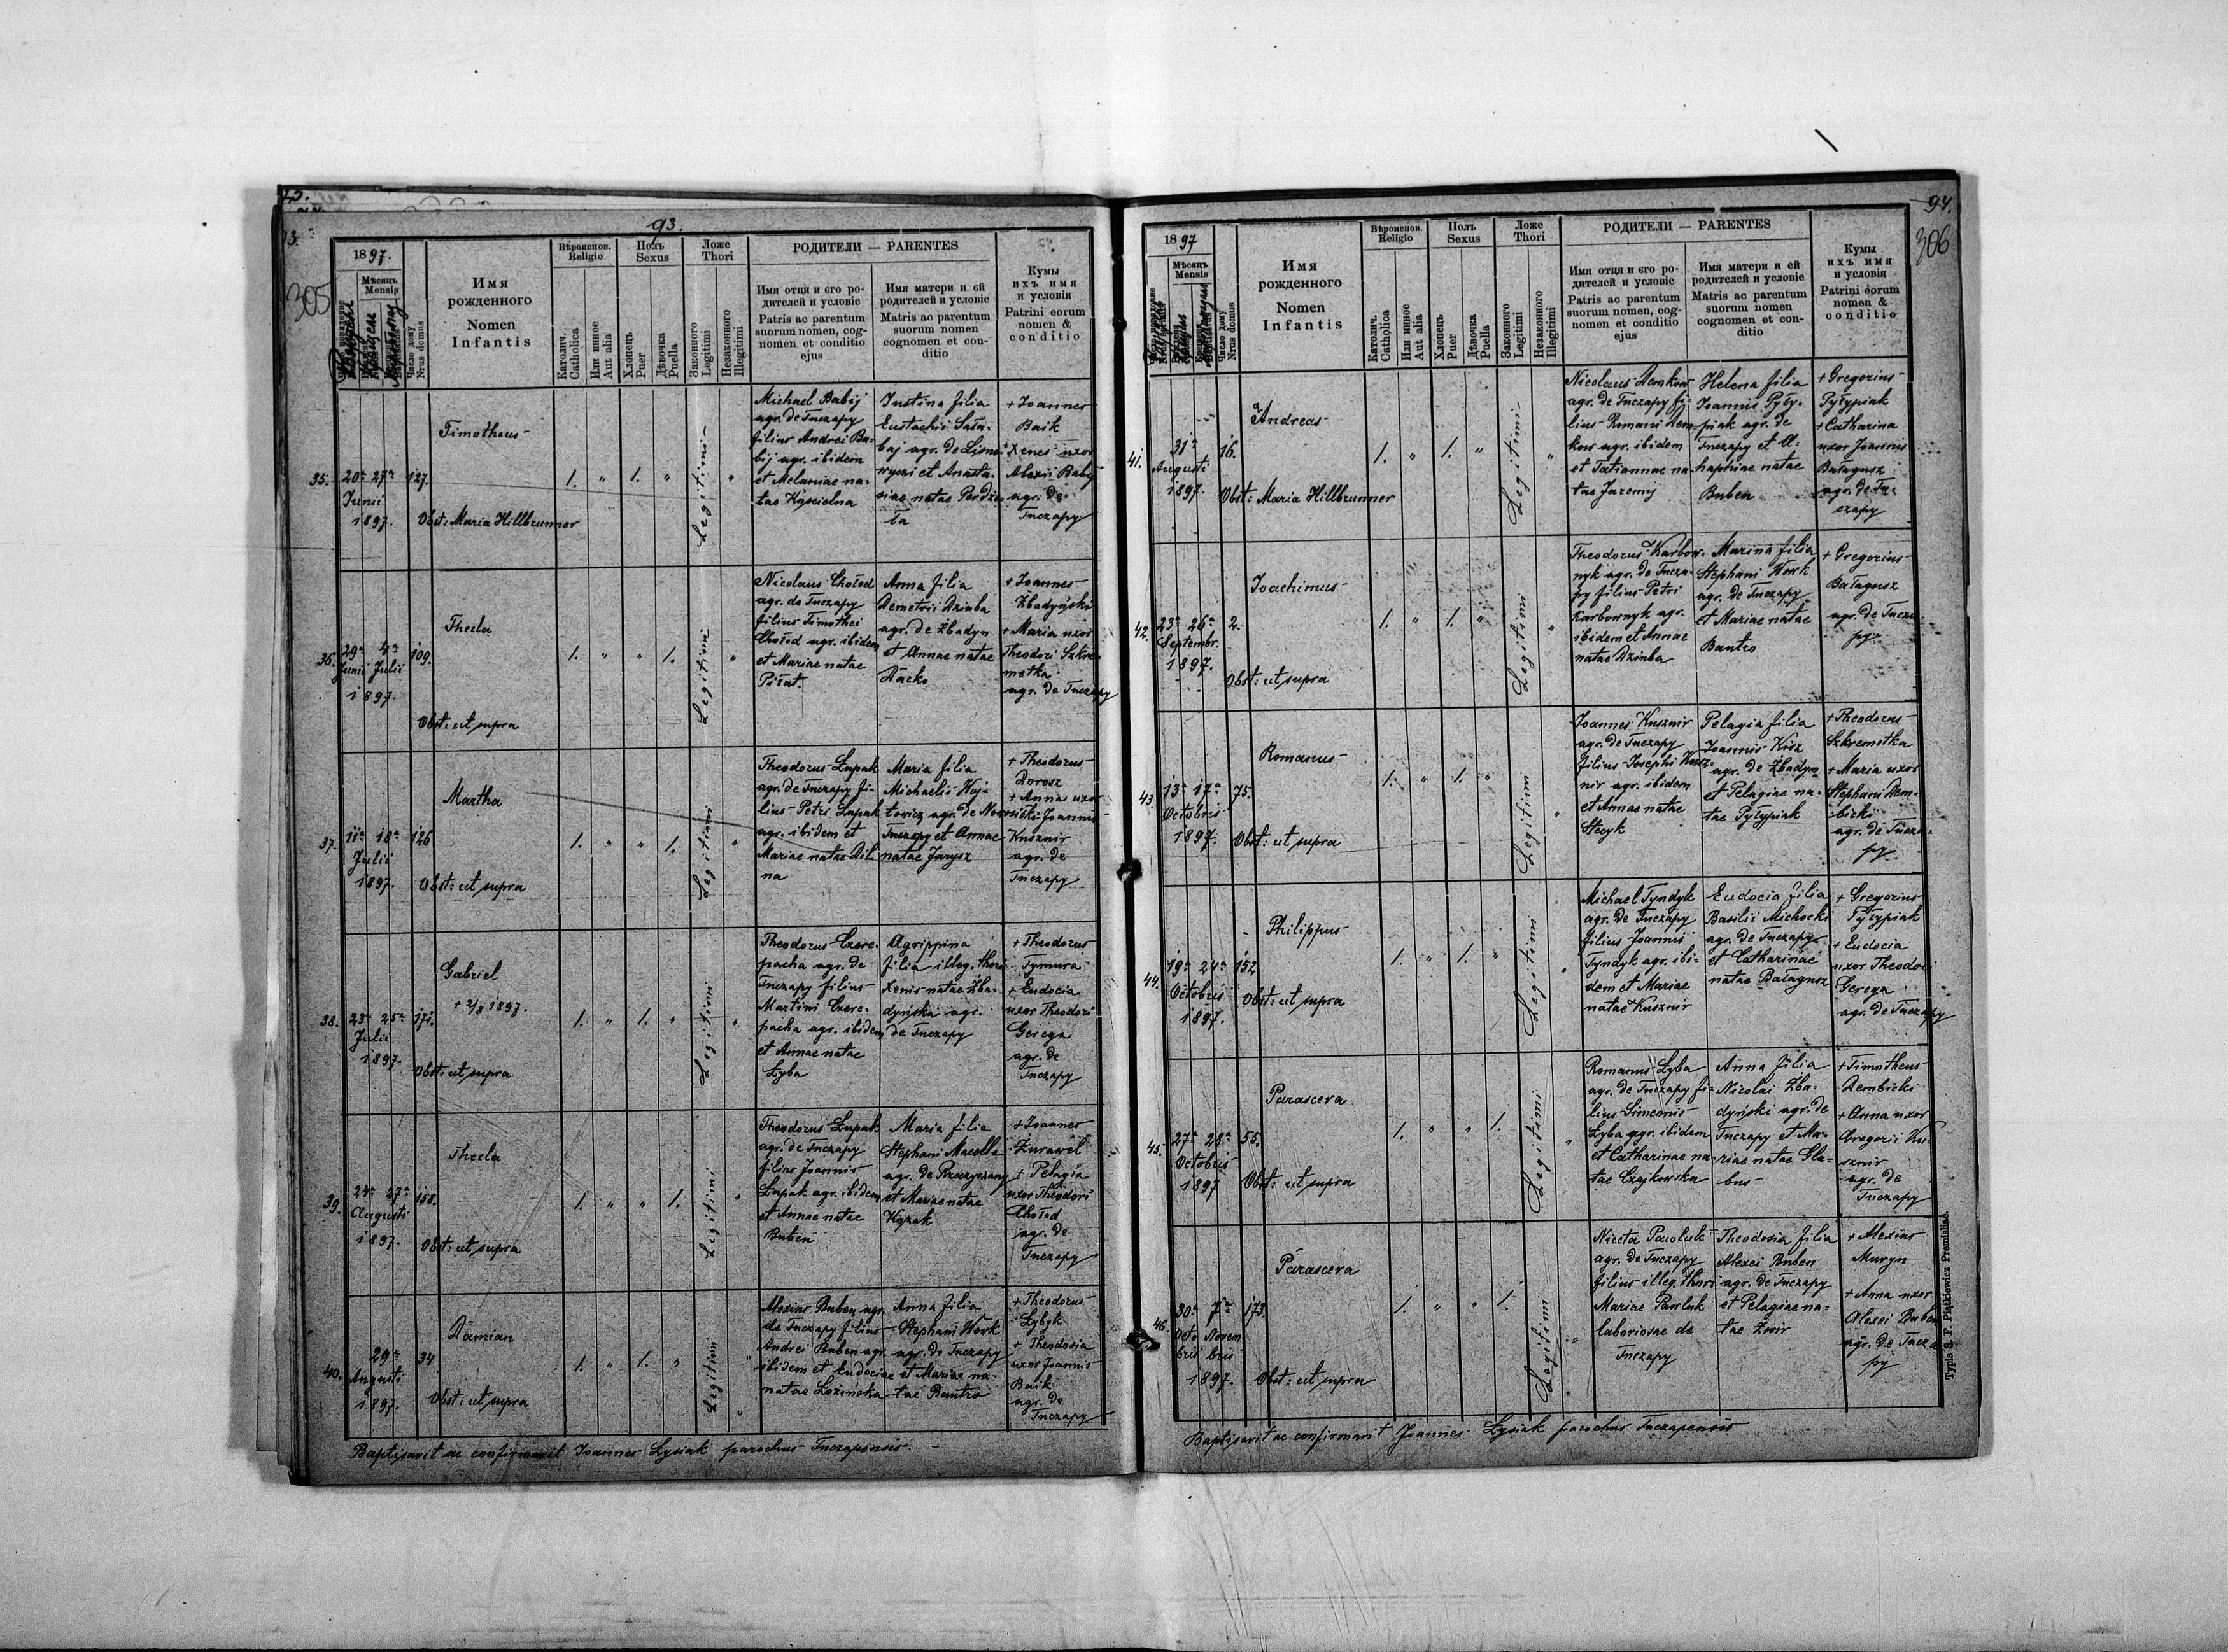 93.
305
1897.
Мѣсяць
Mensis
Число дому
Nrus domus
Имя
рожденного
Nomen
Infantis
Вѣроиспов.
Religio
Католич.
Catholica
Или инное
Aut alia
Полъ
Sexus
Хлопець
Puer
Дѣвочка
Puella
Ложе
Thori
Законного
Legitimi
Незаконного
Illegitimi
РОДИТЕЛИ — PARENTES
Имя отця и єго ро-
дителей и условіе
Patris ac parentum
suorum nomen, cog-
nomen et conditio
ejus
Имя матери и ей
родителей и условіе
Matris ac parentum
suorum nomen
cognomen et con-
ditio
Кумы
ихъ имя
и условія
Patrini eorum
nomen &
conditio
35.
20ª 27ª
Junii
1897.
127.
Timotheus
Obst: Maria Hillbrunner
1. " 1. "
Legitimi
Michael Babij
agr. de Tuczapy
filius Andrei Ba-
bij agr. ibidem
et Melaniae na-
tae
Justina filia
Eustachii
agr. de
et Anasta-
siae natae
+ Joannes
Baik
+ Xenes uxor
Alexii Babij
agr. de
Tuczapy
36.
29ª 4ª
Junii Julii
1897.
109.
Thecla
Obst: ut supra
1. " " 1.
Legitimi
Nicolaus Chołod
agr. de Tuczapy
filius Timothei
Chołod agr. ibidem
et Mariae natae
Anna filia
Demetrii Dziuba
agr. de Zbadyn
et Annae natae
Dacko
+ Joannes
Zbadyński
+ Maria uxor
Theodori Szkre-
motka
agr. de Tuczapy
37.
11ª 18ª
Julii
1897.
126
Martha
Obst: ut supra
1. " " 1.
Legitimi
Theodorus Łupak
agr. de Tuczapy fi-
lius Petri Łupak
agr. ibidem et
Mariae natae Dil-
na
Maria filia
Michaelis Woj-
towicz agr. de
Tuczapy et Annae
natae Jarysz
+ Theodorus
Dorosz
+ Anna uxor
Joannis
Kusznir
agr. de
Tuczapy
38.
23ª 25ª
Julii
1897.
171.
Gabriel
+ 2/8 1897.
Obst: ut supra
1. " 1. "
Legitimi
Theodorus Czere-
pacha agr. de
Tuczapy filius
Martini Czere-
pacha agr. ibidem
et Annae natae
Łyba
Agrippina
filia illeg. thori
Xenis natae Zba-
dyńska agr.
de Tuczapy
+ Theodorus
Tymura
+ Eudocia
uxor Theodori
Gerega
agr. de
Tuczapy
39.
24ª 27ª
Augusti
1897.
158.
Thecla
Obst: ut supra
1. " " 1.
Legitimi
Theodorus Łupak
agr. de Tuczapy
filius Joannis
Łupak agr. ibidem
et Annae natae
Buben
Maria filia
Stephani Macella
agr. de
et Mariae natae
+ Joannes
Żurawel
+ Pelagia
uxor Theodori
Chołod
agr. de
Tuczapy
40.
29ª
Augusti
1897.
34
Damian
Obst: ut supra
1. " 1. "
Legitimi
Alexius Buben agr.
de Tuczapy filius
Andrei Buben agr.
ibidem et Eudociae
natae Łozińska
Anna filia
Stephani Wowk
agr. de Tuczapy
et Mariae na-
tae Bantro
+ Theodorus
Łybyk
+ Theodosia
uxor Joannis
Baik
agr. de
Tuczapy
Baptisavit ac confirmavit Joannes Łysiak parochus Tuczapensis.
94.
306
1897
Мѣсяць
Mensis
Число дому
Nrus domus
Имя
рожденного
Nomen
Infantis
Вѣроиспов.
Religio
Католич.
Catholica
Или инное
Aut alia
Полъ
Sexus
Хлопець
Puer
Дѣвочка
Puella
Ложе
Thori
Законного
Legitimi
Незаконного
Illegitimi
РОДИТЕЛИ — PARENTES
Имя отця и єго ро-
дителей и условіе
Patris ac parentum
suorum nomen, cog-
nomen et conditio
ejus
Имя матери и ей
родителей и условіе
Matris ac parentum
suorum nomen
cognomen et con-
ditio
Кумы
ихъ имя
и условія
Patrini eorum
nomen &
conditio
41.
31ª
Augusti
1897.
16.
Andreas
Obst: Maria Hillbrunner
1. " 1. "
Legitimi
Nicolaus Demkow
agr. de Tuczapy fi-
lius Romani Dem-
kow agr. ibidem
et Tatiannae na-
tae Jaremij
Helena filia
Joannis Pyły-
piak agr. de
Tuczapy et A-
haphiae natae
Buben
+ Gregorius
Pyłypiak
+ Catharina
uxor Joannis
Bałagusz
agr. de Tu-
czapy
42.
23ª 26ª
Septembr.
1897.
2.
Joachimus
Obst: ut supra
1. " 1. "
Legitimi
Theodorus Karbow-
nyk agr. de Tucza-
py filius Petri
Karbownyk agr.
ibidem et Annae
natae Dziuba
Marina filia
Stephani Wowk
agr. de Tuczapy
et Mariae natae
Bantro
+ Gregorius
Bałagusz
agr. de Tucza-
py
43.
13ª 17ª
Octobris
1897.
75.
Romanus
Obst: ut supra
1. " 1. "
Legitimi
Joannes Kusznir
agr. de Tuczapy
filius Josephi Kusz-
nir agr. ibidem
et Annae natae
Stecyk
Pelagia filia
Joannis Kisz
agr. de Zbadyn
et Pelagiae na-
tae Pyłypiak
+ Theodorus
Szkremotka
+ Maria uxor
Stephani Dem-
bicki
agr. de Tucza-
py
44.
19ª 24ª
Octobris
1897.
152
Philippus
Obst: ut supra
1. " 1. "
Legitimi
Michael Tyndyk
agr. de Tuczapy
filius Joannis
Tyndyk agr. ibi-
dem et Mariae
natae Kusznir
Eudocia filia
Basilii Michocki
agr. de Tuczapy
et Catharinae
natae Bałagusz
+ Gregorius
Pyłypiak
+ Eudocia
uxor Theodori
Gerega
agr. de Tuczapy
45.
27ª 28ª
Octobris
1897
55.
Parascera
Obst: ut supra
1. " " 1.
Legitimi
Romanus Łyba
agr. de Tuczapy fi-
lius Simeonis
Łyba agr. ibidem
et Catharinae na-
tae Czajkowska
Anna filia
Nicolai Zba-
dyński agr. de
Tuczapy et Ma-
riae natae Gla-
bus
+ Timotheus
Dembicki
+ Anna uxor
Gregorii Ku-
sznir
agr. de
Tuczapy
46.
30ª 7ª
Octo Novem
bris bris
1897.
173.
Parascera
Obst: ut supra
1. " " 1.
Legitimi
Niceta Pawluk
agr. de Tuczapy
filius illeg. thori
Mariae Pawluk
laboriosae de
Tuczapy
Theodosia filia
Alexei Buben
agr. de Tuczapy
et Pelagiae na-
tae Żwir
+ Alexius
Muryn
+ Anna uxor
Alexei Buben
agr. de Tucza-
py
Baptisavit ac confirmavit Joannes Łysiak parochus Tuczapensis
Typis S. F. Piątkiewicz Premisliae.